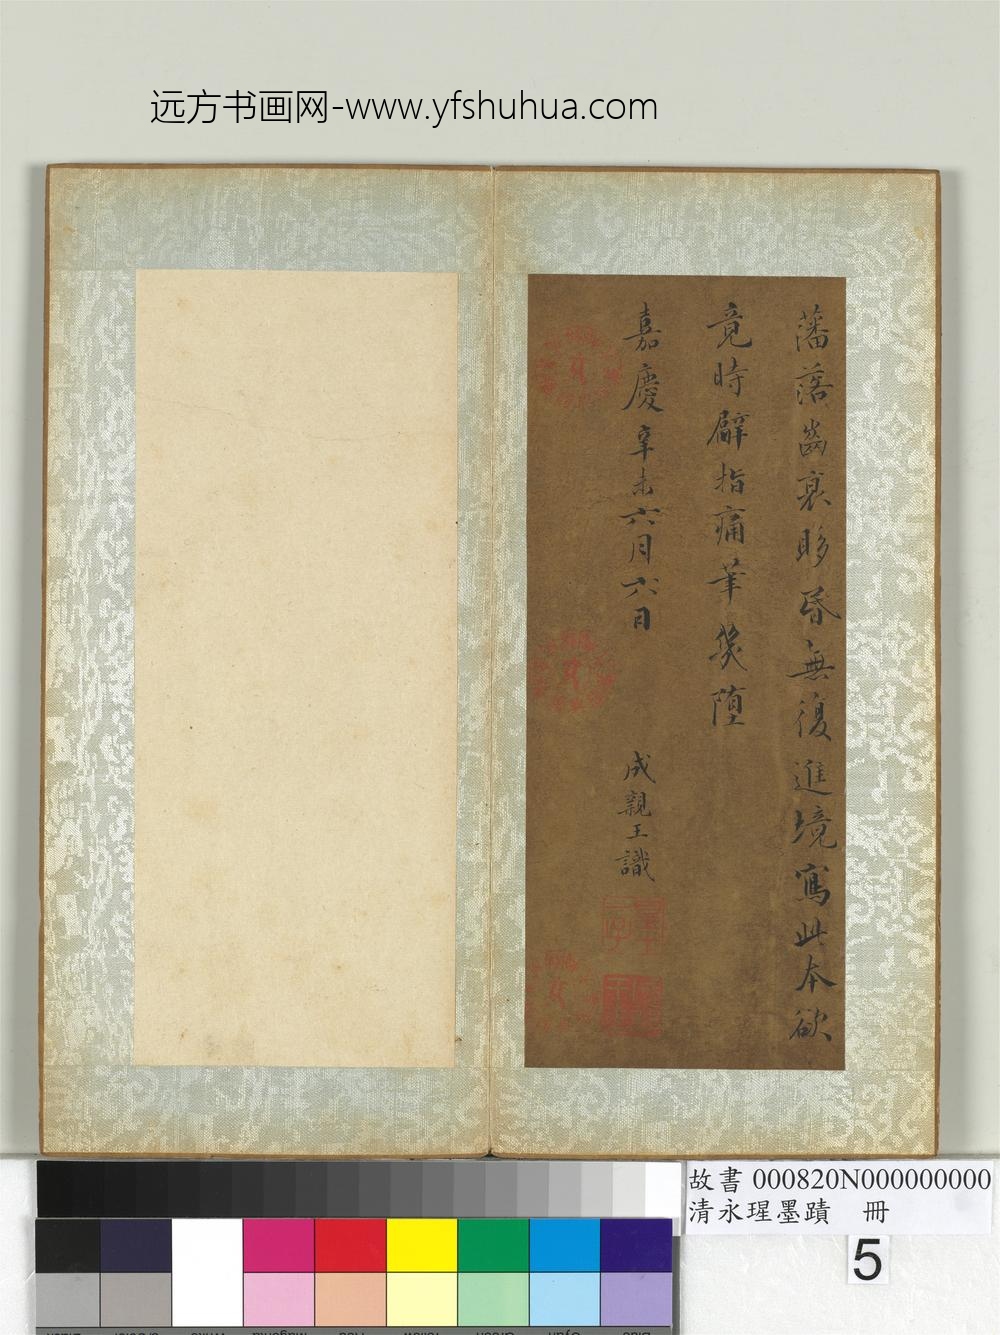 远方书画网-www.yfshuhua.com
藩落齒衰眵昏無復進境寫此本欲
竟時擘指痛筆幾堕
嘉慶辛未六月六日
成親王識
故書 000820N000000000
清永瑆墨蹟 冊
5